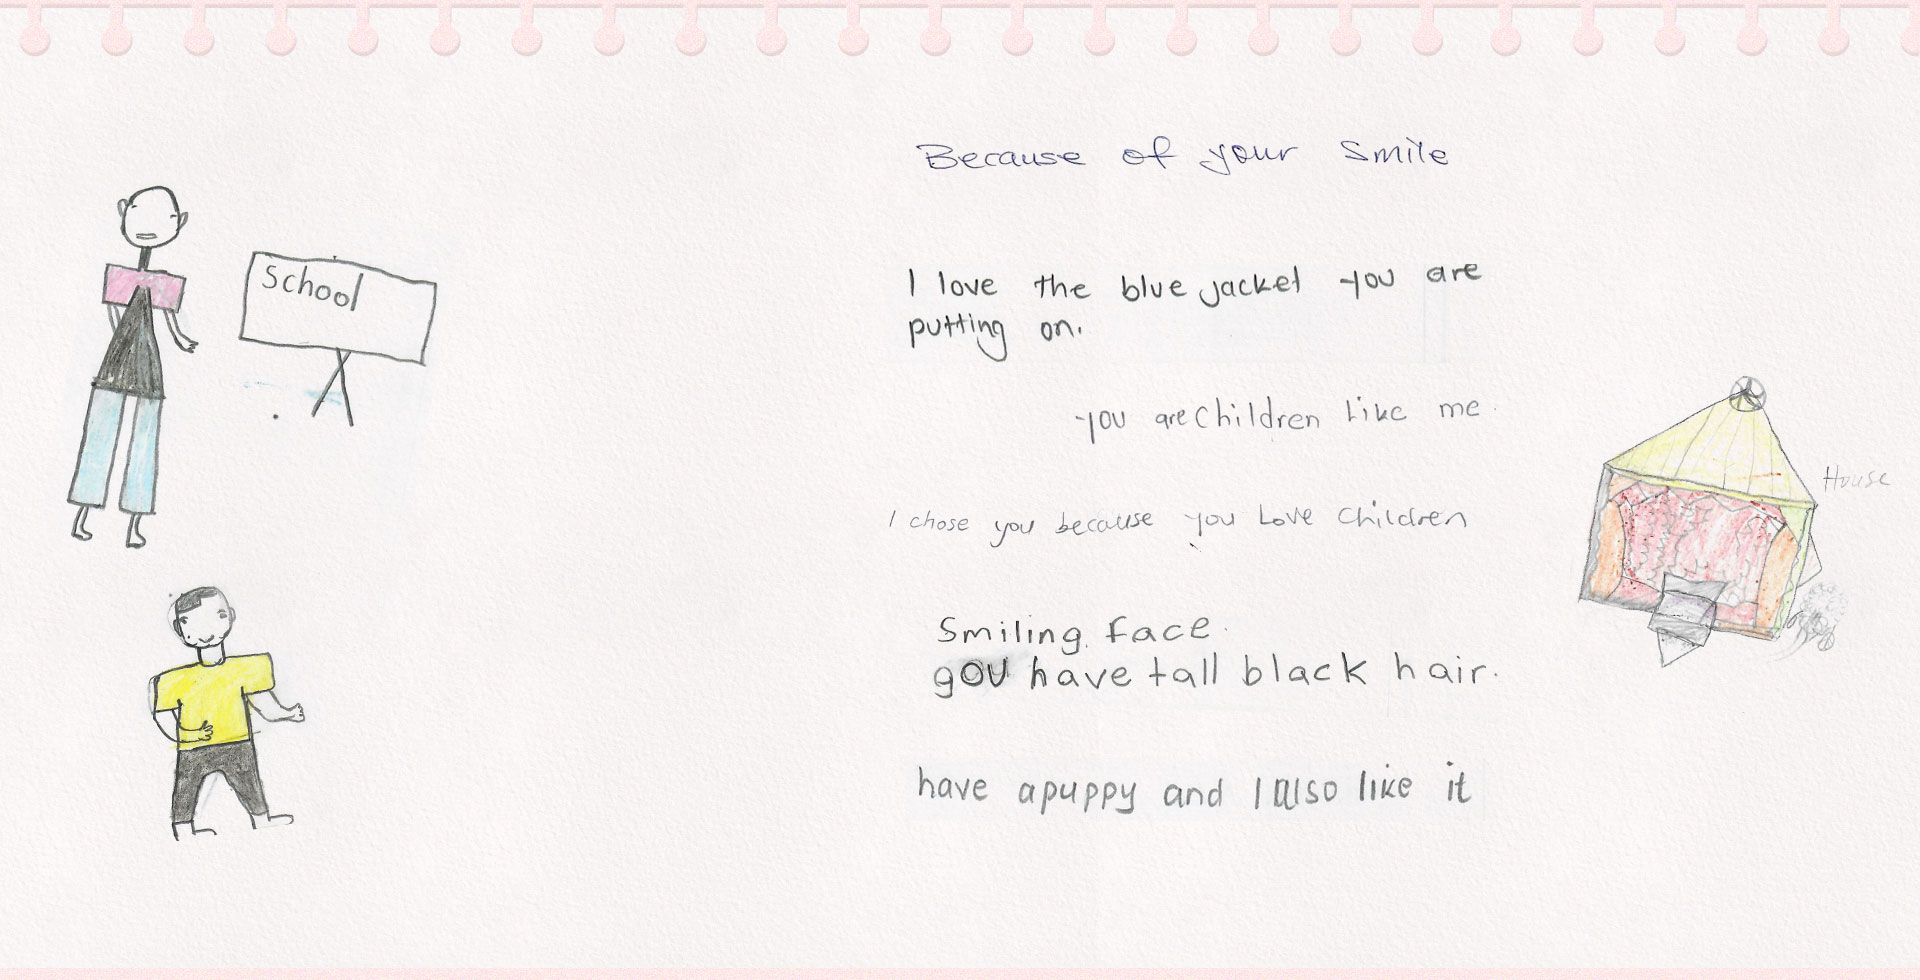 Because of your smile
School
I love the blue jacket you are
putting on.
you are children like me
House
I chose you because you Love children
Smiling face.
gou have tall black hair.
have apuppy and I also like it